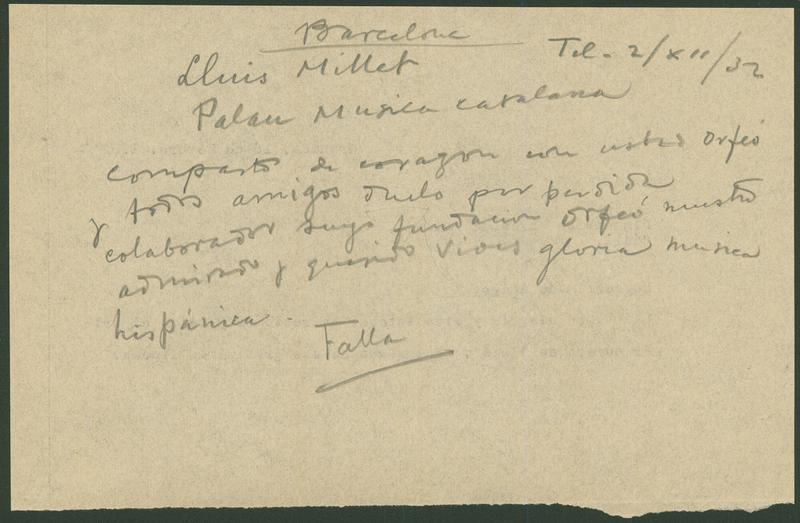 Barcelona
Tel. 2/XII/32
Lluis Millet
Palau Musica catalana
comparto de corazon con usted Orfeó
y todos amigos duelo por perdida
colaborador suyo fundacion Orfeó nuestro
admirado y querido Vives gloria musica
hispánica.
Falla